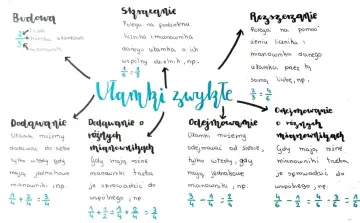 Budowa
licznik
kreska ułamkowa
mianownik
Skracanie
Polega na podzieleniu
licznika i mianownika
danego ułamka o ich
wspólny dzielnik, np.
Rozszerzanie
Polega na pomno-
żeniu licznika i
mianownika danego
ułamka przez tę
samą liczbę, np.
Ułamki zwykłe
Dodawanie
Ułamki możemy
dodawać do siebie
tylko wtedy gdy
mają jednakowe
mianowniki, np.
Dodawanie o
różnych
mianownikach
Gdy mają różne
mianowniki trzeba
je sprowadzić do
wspólnego, np.
Odejmowanie
Ułamki możemy
odejmować od siebie,
tylko wtedy, gdy
mają jednakowe
mianowniki, np.
Odejmowanie
o różnych
mianownikach
Gdy mają różne
mianowniki trzeba
je sprowadzić do
wspólnego, np.